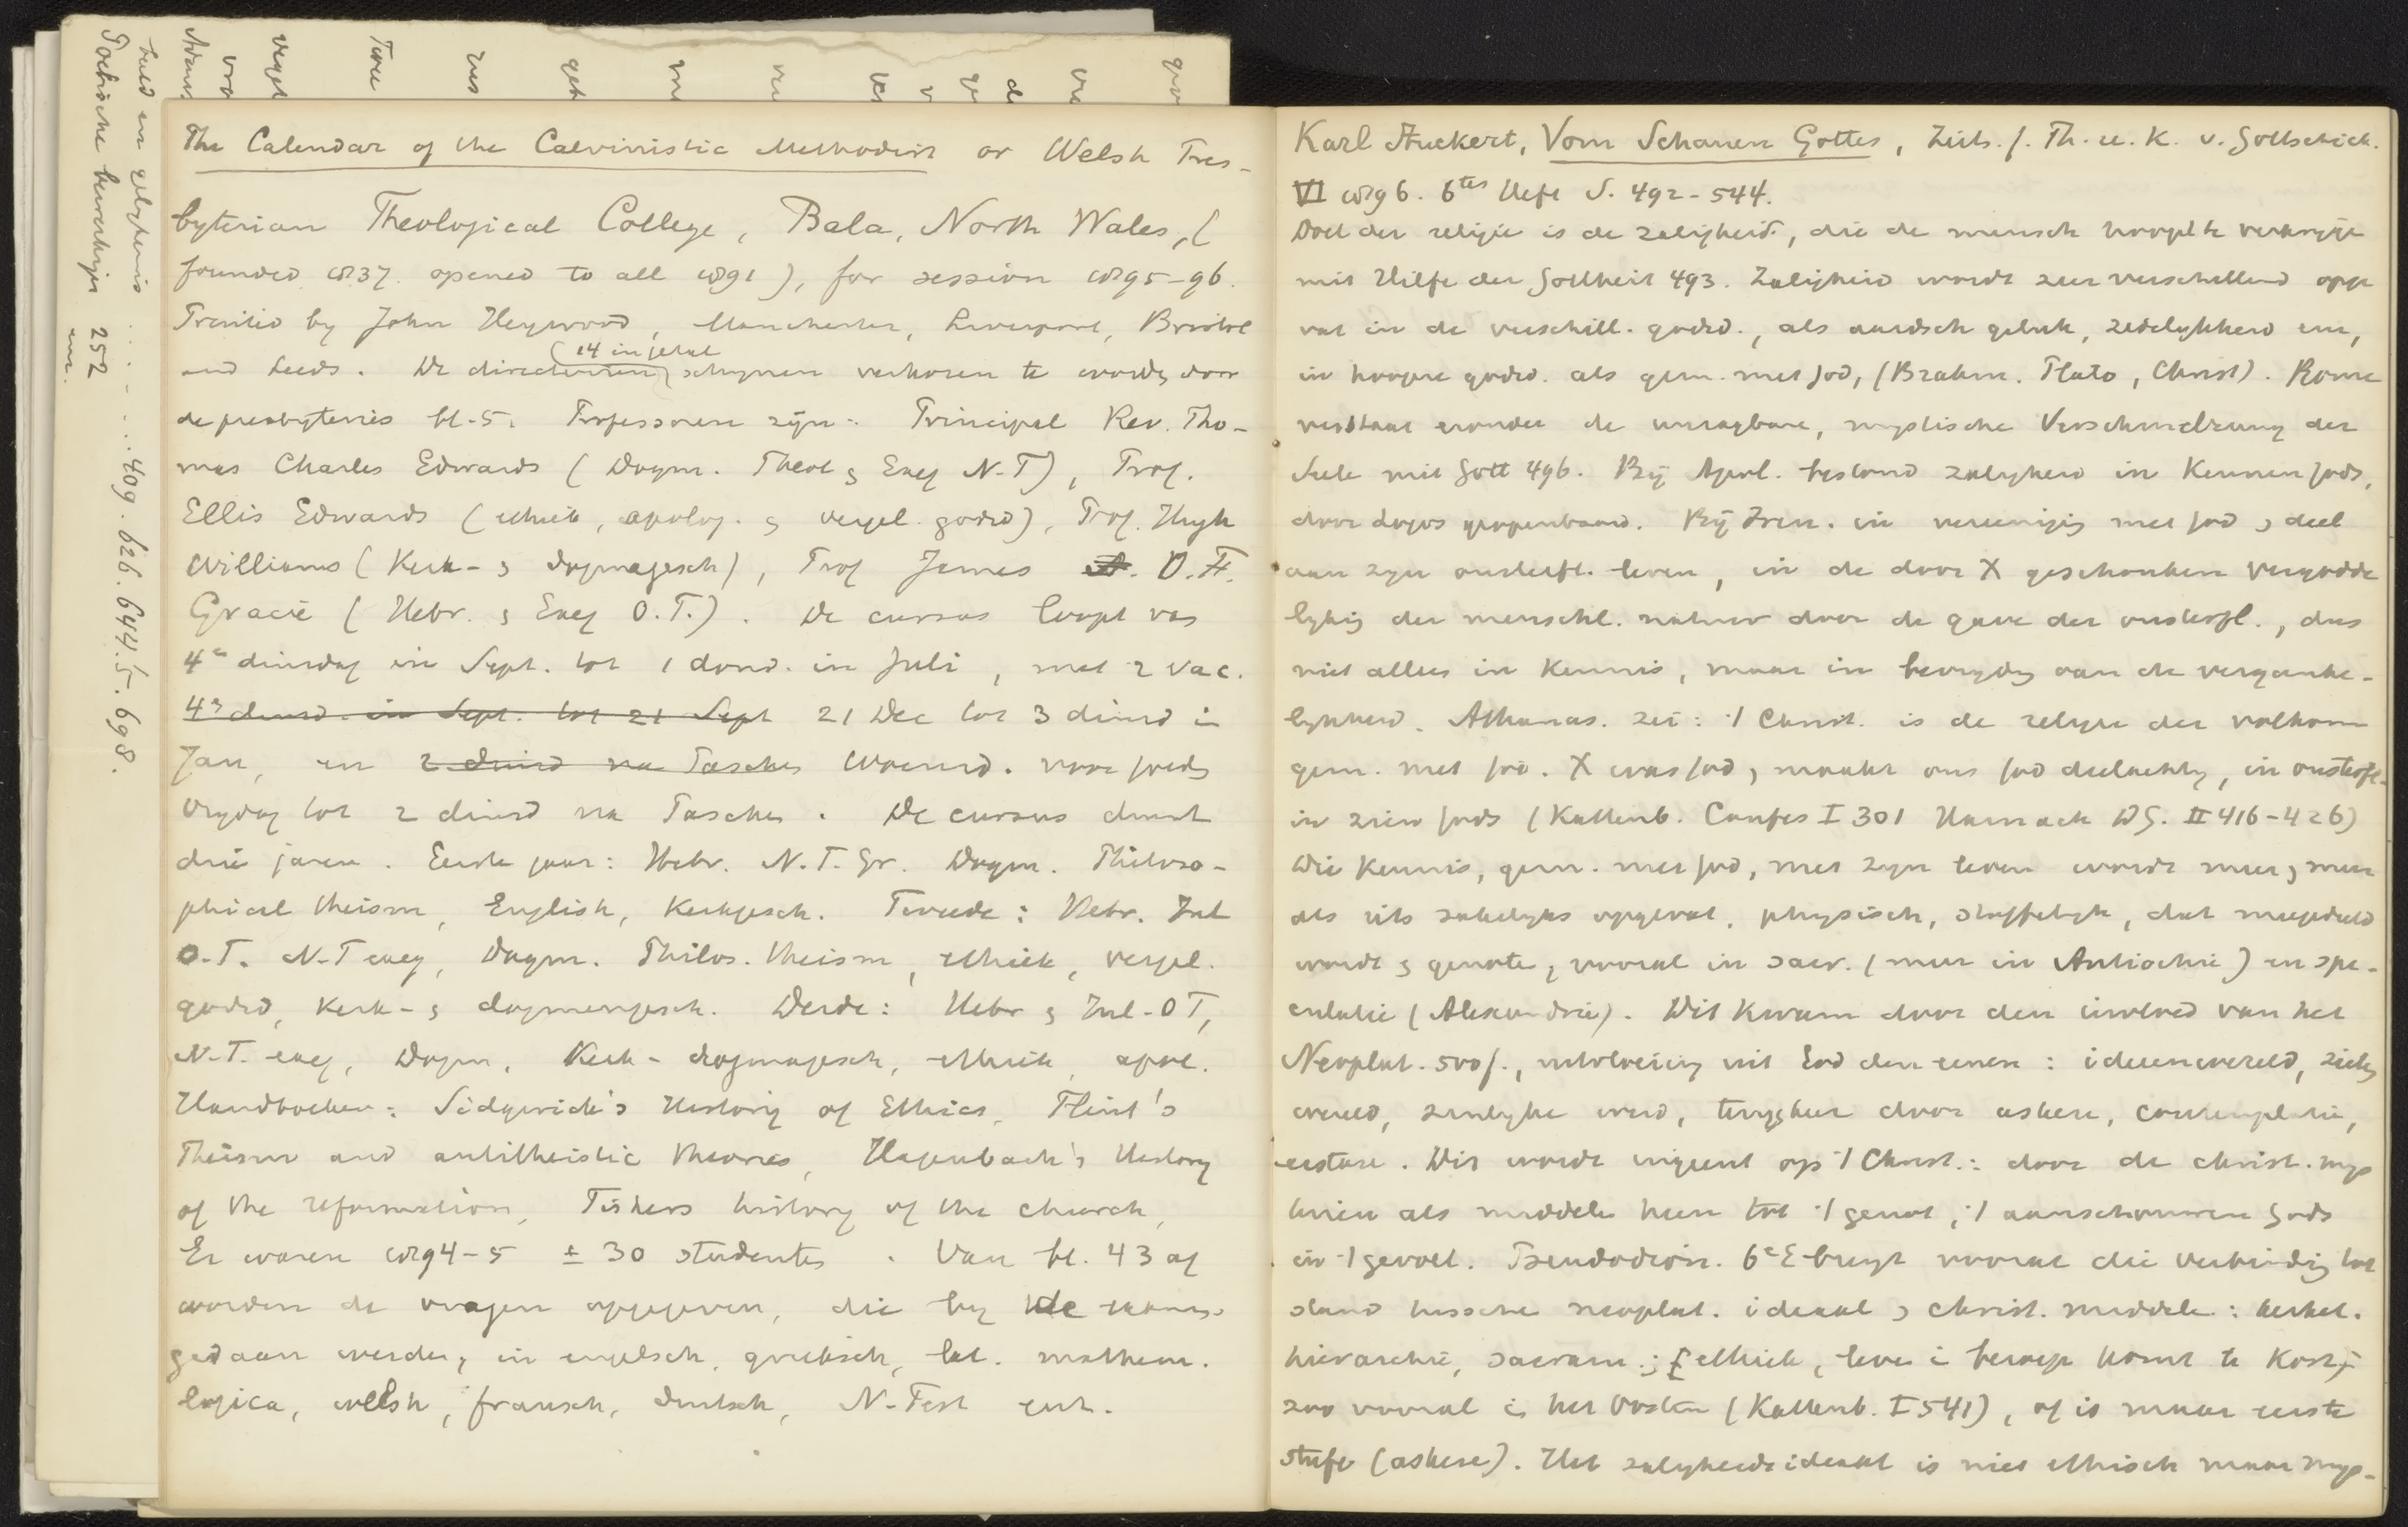 The Calendar of the Calvinistic Methodist or Welsh Pres-
byterian Theological College, Bala, North Wales, (
founded 1837. opened to all 1891), for session 1895-96.
Printed by John Heywood, Manchester, Liverpool, Bristol
(14 in getal
and Leeds. De directeuren) schijnen verkoren te worden door
de presbyteries bl. 5. Professoren zijn: Principal Rev. Tho-
mas Charles Edwards (Dogm. Theol & Exeg N.T), Prof.
Ellis Edwards (ethiek, apolog. & vergel. godsd), Prof. Hugh
Williams (Kerk- & dogmagesch), Prof James D. F.
Gracie (Hebr. & Exeg O.T.). De cursus loopt van
4e dinsdag in Sept. tot 1 dond. in Juli, met 2 vac.
4e dinsd. in Sept. tot 21 Sept 21 Dec tot 3 dinsd in
Jan, en 2 dinsd na Paschen Woensd. voor goeden
Vrydag tot 2 dinsd na Paschen. De cursus duurt
drie jaren. Eerste jaar: Hebr. N.T. Gr. Dogm. Philoso-
phical theism, English, Kerkgesch. Tweede: Hebr. Inl
O.T. N.T exeg, Dogm. Philos. theism, ethiek, vergel.
godsd, Kerk- & dogmengesch. Derde: Hebr & Inl. OT,
N.T. exeg, Dogm, Kerk- dogmagesch, ethiek, apol.
Handboeken: Sidgwick's History of Ethics, Flint's
Theism and antitheistic theories, Hagenbach's History
of the reformation, Fishers history of the church,
Er waren 1894-5 ± 30 studenten. Van bl. 43 af
worden de vragen opgegeven, die by de examens
gedaan werden, in engelsch, grieksch, lat. mathem.
logica, welsh, fransch, duitsch, N-Test enz.
Karl Stuckert, Vom Schauen Gottes, Zeits. f. Th. u. K. v. Gottschick.
VI 1896. 6tes Heft S. 492-544.
Doel der religie is de zaligheid, die de mensch hoopt te verkrijgen
mit Hilfe der Gottheit 493. Zaligheid wordt zeer verschillend opge
vat in de verschill. godsd., als aardsch geluk, zedelijkheid enz,
in hoogere godsd. als gem. met God, (Brahm. Plato, Christ). Rome
verstaat eronder de unsagbare, mystische Verschmelzung der
Seele mit Gott 496. Bij Apol. bestond zaligheid in Kennen Gods,
door Logos geopenbaard. Bij Iren. in vereeniging met God & deel
aan zyn onsterfl. leven, in de door X geschonken vergodde
lyking der menschl. natuur door de gave der onsterfl., dus
niet alleen in Kennis, maar in bevryding van de verganke-
lykheid. Athanas. zei: 't Christ. is de religie der volkom
gem. met God. X was God, maakt ons God deelachtig, in onsterfl.
in zien Gods (Kattenb. Confes I 301 Harnack DG. II 416-426)
Die Kennis, gem. met God, met zyn leven wordt meer & meer
als iets zakelyks opgevat, physisch, stoffelyk, dat meegedeeld
wordt & genoten, vooral in sacr. (meer in Antiochie) en spe-
culatie (Alexandrie). Dit kwam door den invloed van het
Neoplat. 500 f., uitvloeiing uit God den eenen: ideenwereld, ziels
wereld, zinlyke wereld, terugkeer door askese, contemplatie,
extase. Dit wordt ingeënt op 't Christ.: door de christ. mys
teriën als middelen heen tot 't genot, 't aanschouwen Gods
in 't gevoel. Pseudodion. 6e E brengt vooral die verbinding tot
stand tusschen neoplat. ideaal & christ. middelen: kerkel.
hierarchie, sacram.; ethiek, leven i beroep komt te kort;
zoo vooral in het Oosten (Kattenb. I 541), of is maar eerste
stufe (askese). Het zaligheidsideaal is niet ethisch maar mys-
Poetische berichtijn 252
409. 626. 644. 5. 698.